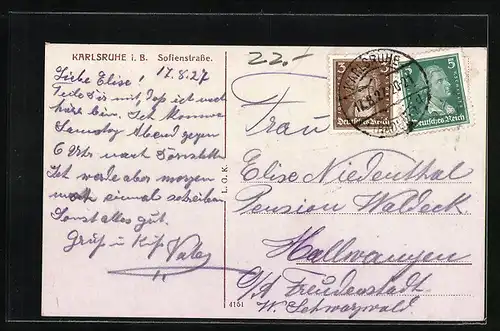 KARLSRUHE i. B. Sofienstraße.
22.-
17.8.27
Liebe Elise!
Teile Dir mit, daß ich noch
hier bin. Ich komme
Samstag Abend gegen
6 Uhr nach
Ich werde aber morgen
noch einmal schreiben
Sonst alles gut.
Gruß u. Kuß Vater
L. G. K.
4151
KARLSRUHE
3
Deutsches Reich
5
Deutsches Reich
Frau
Elise Niedenthal
Pension Waldeck
Hallwangen
O/A Freudenstadt
W. Schwarzwald